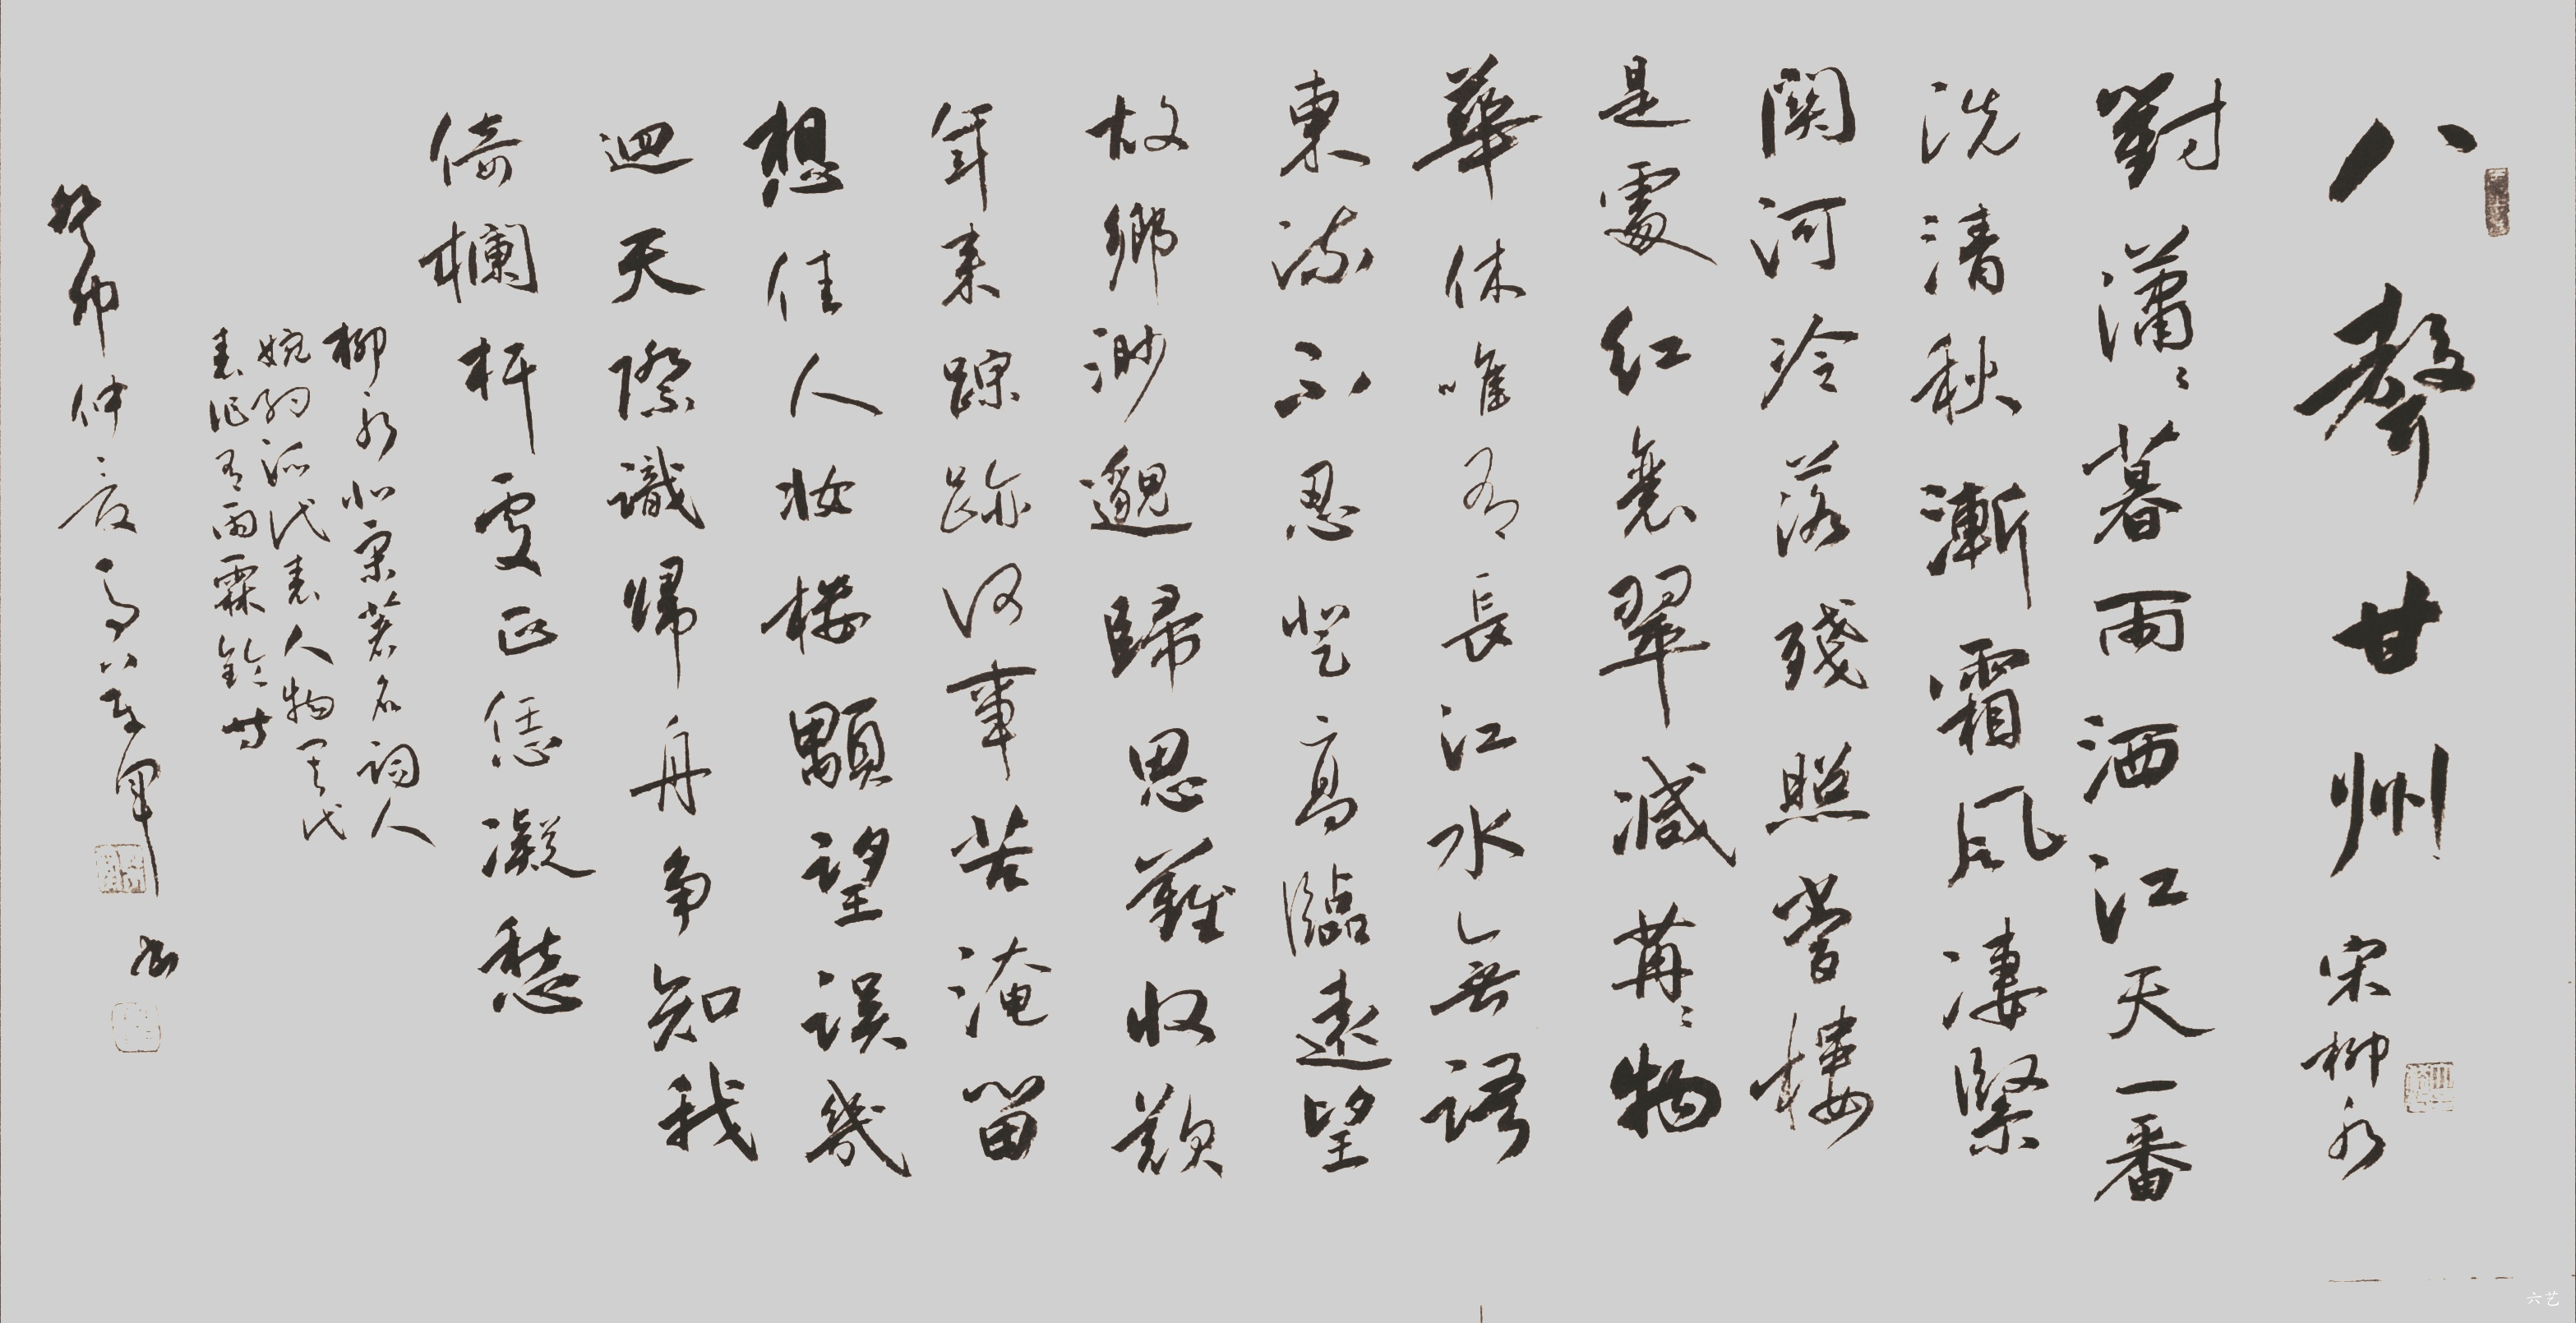 八聲甘州 宋柳永
對瀟〻暮雨洒江天一番
洗清秋漸霜風凄緊
関河冷落殘照當樓
是處紅衰翠減苒〻物
華休唯有長江水無語
東流不忍登高臨遠望
故鄉渺邈歸思難收歎
年來蹤跡何事苦淹留
想佳人妝樓顒望誤幾
迴天際識歸舟争知我
倚欄杆處正恁凝愁
柳永北宋著名詞人
婉約派代表人物其代
表作有雨霖鈴等
癸卯仲夏 書
六艺